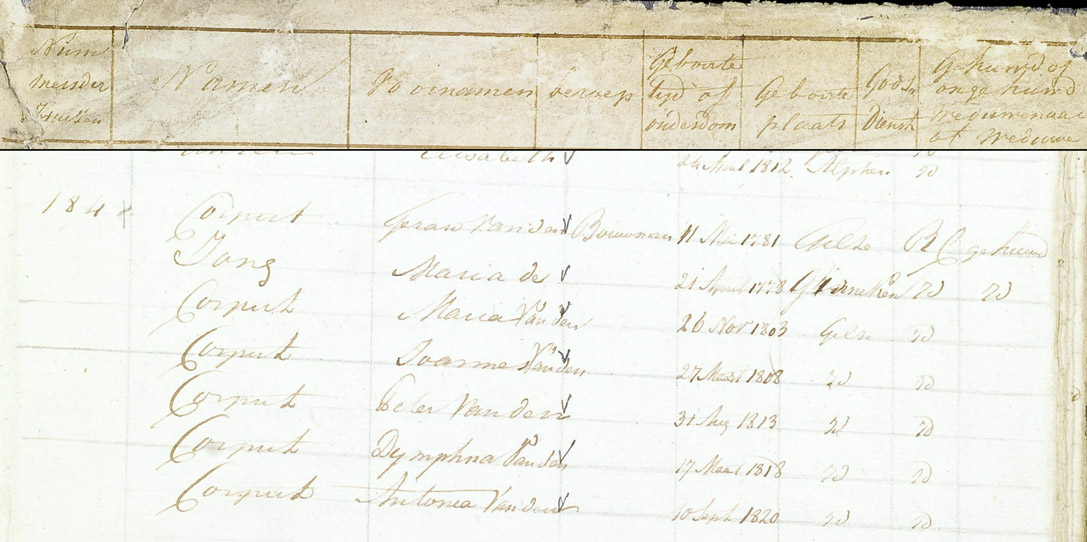 Num
merder
Namen Voornamen beroep
Geboorte
tyd of
ouderdom
Geboorte
plaats
Gods
Dienst
Gehuwd of
ongehuwd
weduwenaar
of weduwe
Elisabeth 1812 Alphen id
184 Corput Gerard Van den Bouwman 11 Mei 1781 Gilze R C gehuwd
Jong Maria de 21 April 1778 Ginneken id id
Corput Maria Van den 26 Nov 1803 Gilze id
Corput Joannes Van den 27 Maart 1808 id id
Corput Peter Van den 31 Aug 1813 id id
Corput Dymphna Van den 17 Maart 1818 id id
Corput Antonea Van den 10 Sept 1820 id id